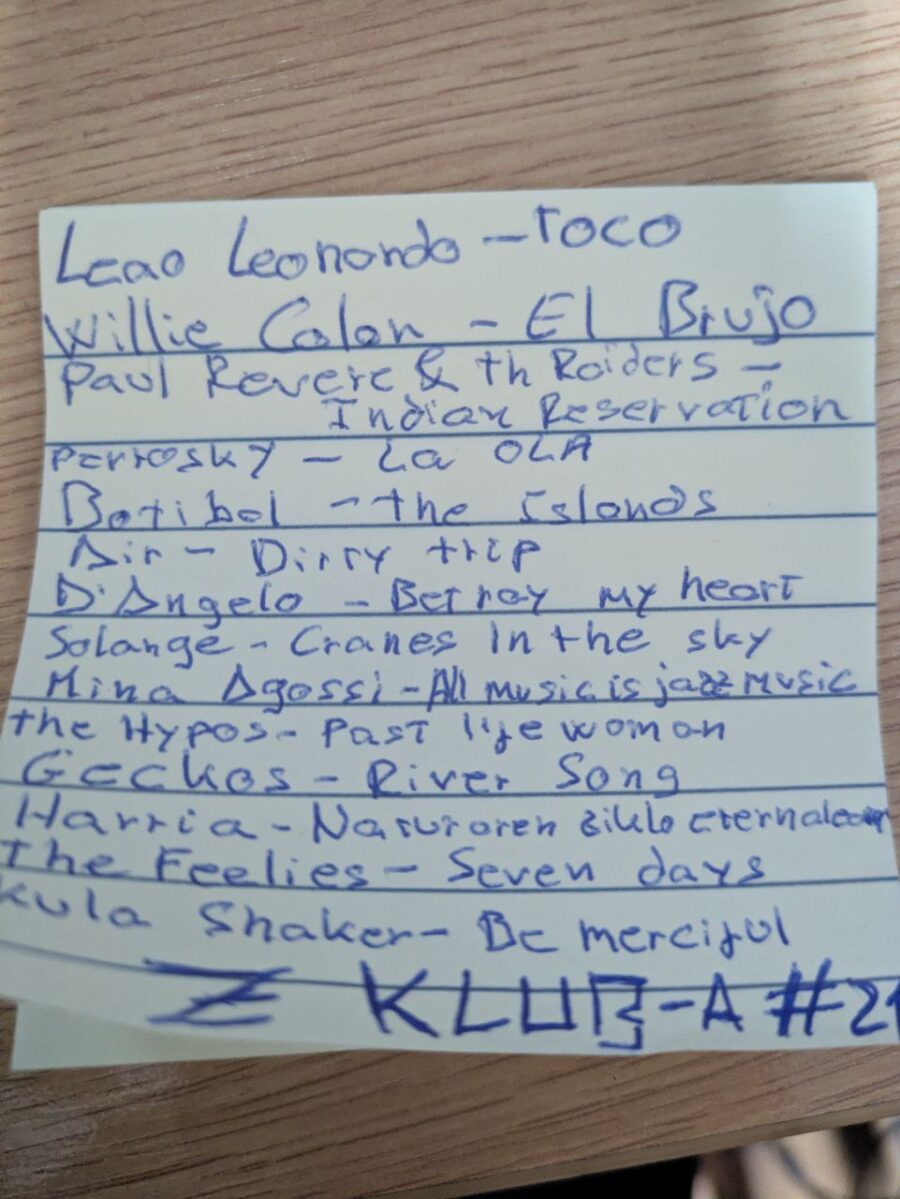 Leao Leonardo - Toco
Willie Colon - El Brujo
Paul Revere & th Raiders -
Indian Reservation
Perrosky - La OLA
Botibol - the Islands
Air - Dirty trip
D'Angelo - Betray my heart
Solange - Cranes in the sky
Mina Agossi - All music is jazz music
the Hypos - Past life woman
Geckos - River Song
Harria - Naturaren ziklo
The Feelies - Seven days
Kula Shaker - Be merciful
Z KLUB-A #21